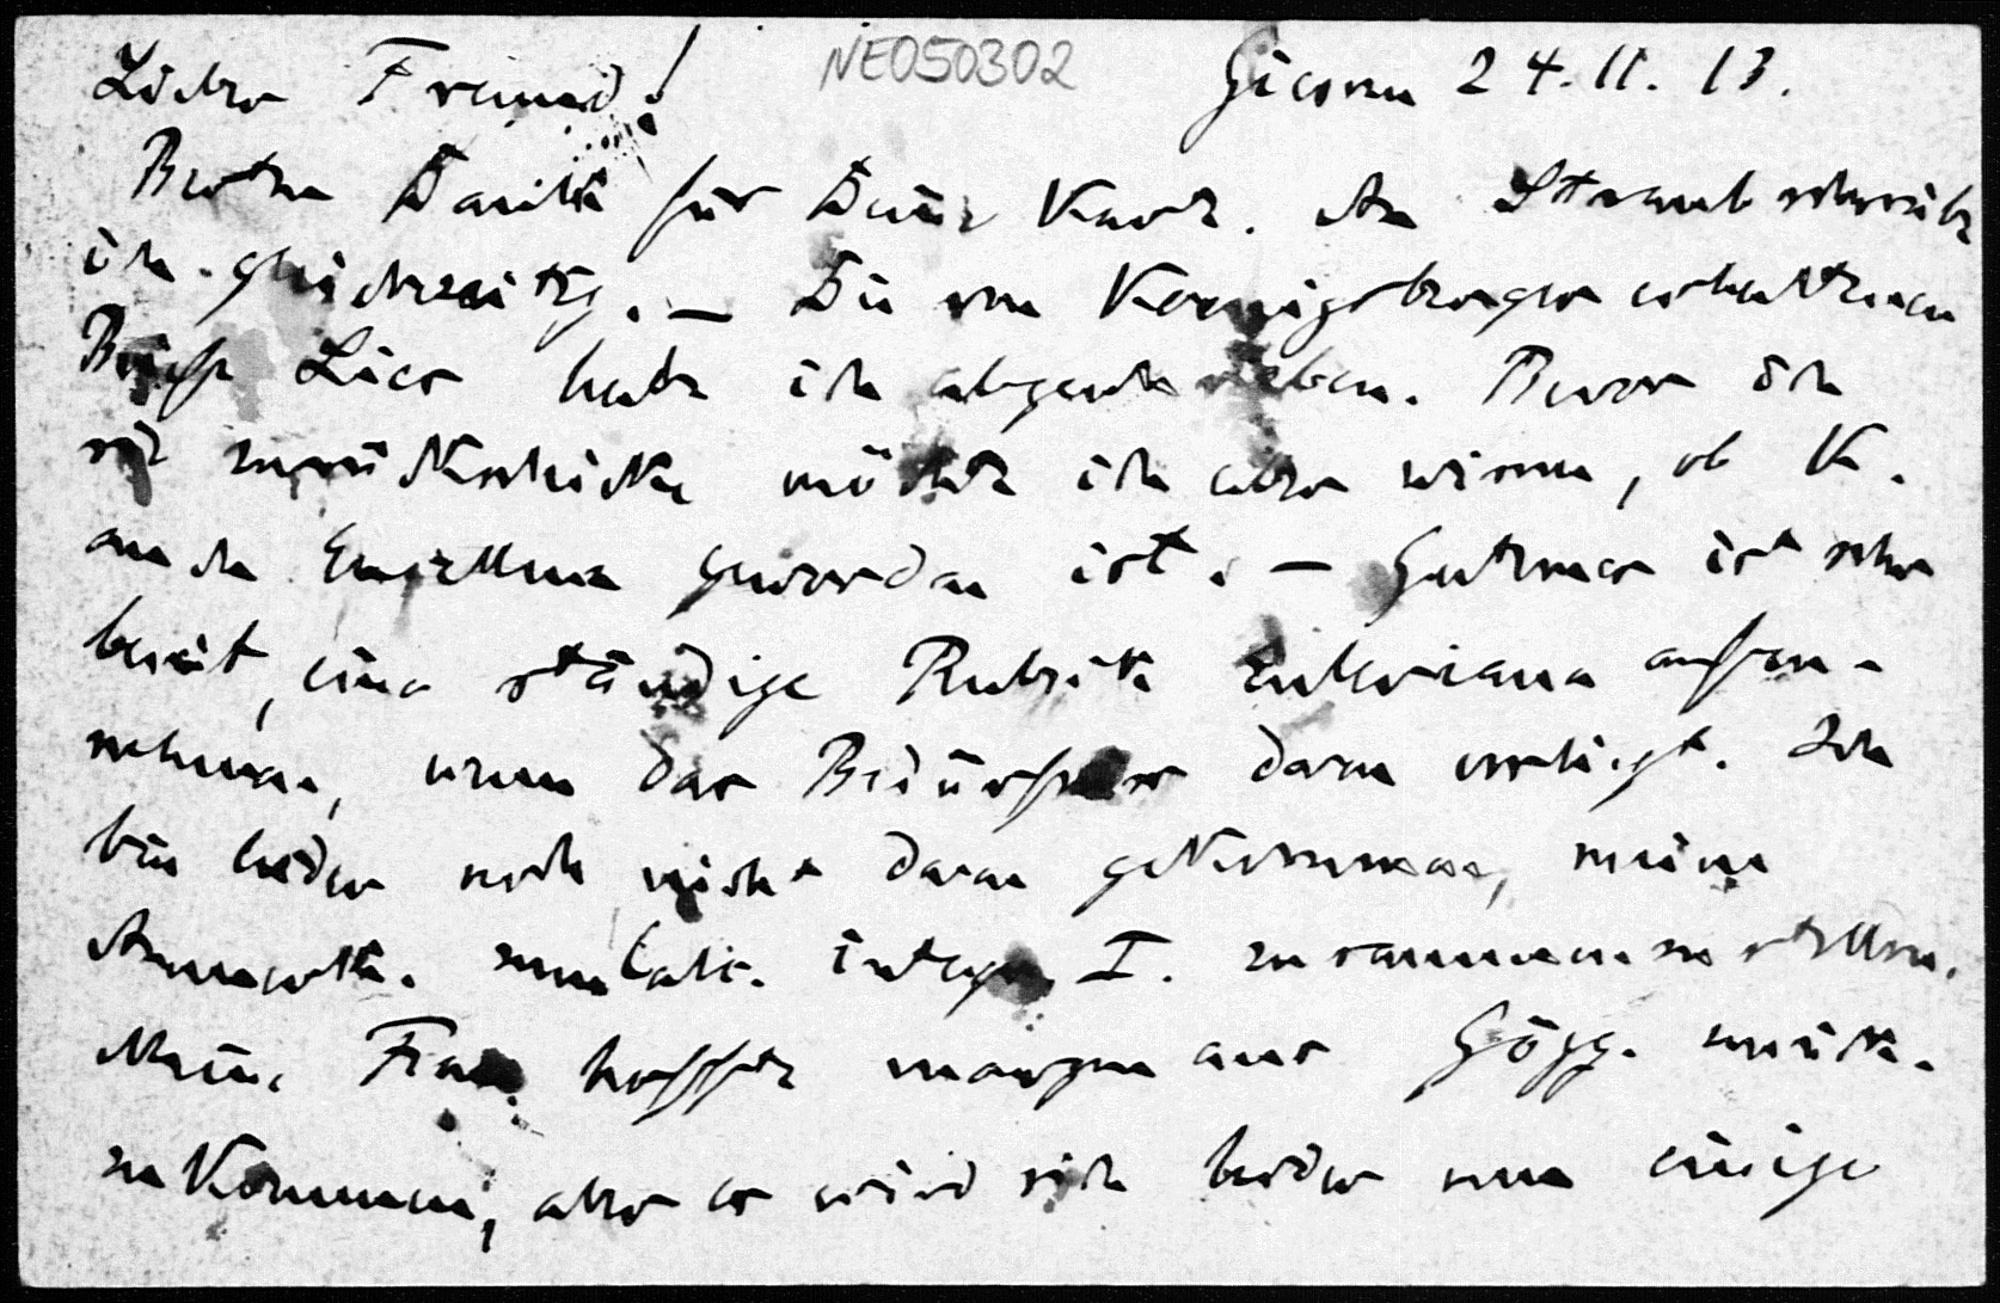 Lieber Freund! NE050302 Giessen 24.11.13.
Besten Dank für Deine Karte. An Straub schreibe
ich gleichzeitig. — Die von Koenigsberger erhaltenen
Briefe Lies habe ich abgeschrieben. Bevor ich
sie zurückschicke möchte ich aber wissen, ob K.
auch Exzellenz geworden ist. — Gutzmer ist sehr
bereit, eine ständige Rubrik Euleriana aufzu-
nehmen, wenn das Bedürfnis dazu vorliegt. Ich
bin leider noch nicht dazu gekommen, meine
Anmerk. zum Calc. integr. I. zusammenzustellen.
Meine Frau hoffte morgen aus Gögg. zurück-
zukommen, aber es wird sich leider um einige